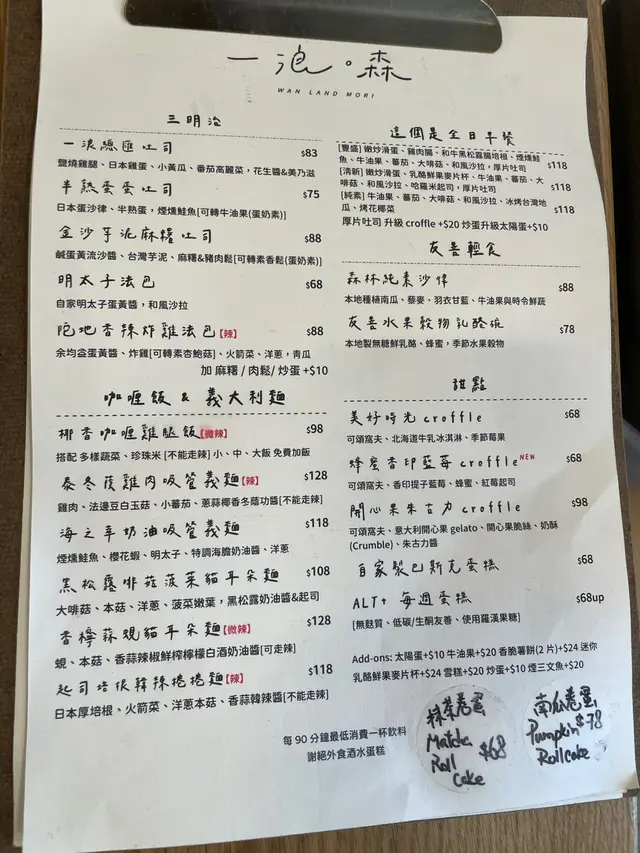 一浪。森
WAN LAND MORI
三明治
一浪總匯吐司 $83
鹽燒雞腿、日本雞蛋、小黃瓜、番茄高麗菜，花生醬&美乃滋
半熟蛋蛋吐司 $75
日本蛋沙律、半熟蛋，煙燻鮭魚[可轉牛油果(蛋奶素)]
金沙芋泥麻糬吐司 $88
鹹蛋黃流沙醬、台灣芋泥、麻糬&豬肉鬆[可轉素香鬆(蛋奶素)]
明太子法包 $68
自家明太子蛋黃醬，和風沙拉
陀地香辣炸雞法包【辣】 $88
余均益蛋黃醬、炸雞[可轉素杏鮑菇]、火箭菜、洋蔥，青瓜
加 麻糬 / 肉鬆/ 炒蛋 +$10
咖喱飯 & 義大利麵
椰香咖喱雞腿飯【微辣】 $98
搭配 多樣蔬菜、珍珠米 [不能走辣] 小、中、大飯 免費加飯
泰冬蔭雞肉吸管義麵【辣】 $128
雞肉、法邊豆白玉菇、小蕃茄、蔥蒜椰香冬蔭功醬[不能走辣]
海之辛奶油吸管義麵 $118
煙燻鮭魚、櫻花蝦、明太子、特調海膽奶油醬、洋蔥
黑松露啡菇菠菜貓耳朵麵 $108
大啡菇、本菇、洋蔥、菠菜嫩葉，黑松露奶油醬&起司
香檸蒜蜆貓耳朵麵【微辣】 $128
蜆、本菇、香蒜辣椒鮮榨檸檬白酒奶油醬[可走辣]
起司培根韓辣捲捲麵【辣】 $118
日本厚培根、火箭菜、洋蔥本菇、香蒜韓辣醬[不能走辣]
每 90 分鐘最低消費一杯飲料
謝絕外食酒水蛋糕
這個是全日早餐
[豐盛] 嫩炒滑蛋、雞肉腸、和牛黑松露腸培根、煙燻鮭
魚、牛油果、蕃茄、大啡菇、和風沙拉，厚片吐司 $118
[清新] 嫩炒滑蛋、乳酪鮮果麥片杯、牛油果、蕃茄、大
啡菇、和風沙拉、哈羅米起司，厚片吐司 $118
[純素] 牛油果、蕃茄、大啡菇、和風沙拉、冰烤台灣地
瓜、烤花椰菜 $118
厚片吐司 升級 croffle +$20 炒蛋升級太陽蛋+$10
友善輕食
森林純素沙律 $88
本地種植南瓜、藜麥、羽衣甘藍、牛油果與時令鮮蔬
友善水果穀物乳酪碗 $78
本地製無糖鮮乳酪、蜂蜜，季節水果穀物
甜點
美好時光 croffle $68
可頌窩夫、北海道牛乳冰淇淋、季節莓果
蜂蜜香印藍莓 croffle NEW $68
可頌窩夫、香印提子藍莓、蜂蜜、紅莓起司
開心果朱古力 croffle $98
可頌窩夫、意大利開心果 gelato、開心果脆絲、奶酥
(Crumble)、朱古力醬
自家製巴斯克蛋糕 $68
ALT+ 每週蛋糕 $68up
[無麩質、低碳/生酮友善、使用羅漢果糖]
Add-ons: 太陽蛋+$10 牛油果+$20 香脆薯餅(2 片)+$24 迷你
乳酪鮮果麥片杯+$24 雪糕+$20 炒蛋+$10 煙三文魚+$20
抹茶卷蛋
Matcha
Roll
Cake
$68
南瓜卷蛋
Pumpkin $78
Rollcake